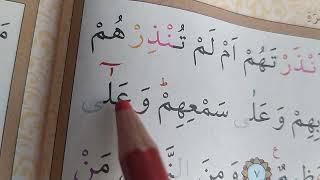 نْذَرْتَهُمْ اَمْ لَمْ تُنْذِرْهُمْ
بِهِمْ وَعَلٰى سَمْعِهِمْ وَعَلٰٓى
۷ وَمِنَ النَّ مَنْ